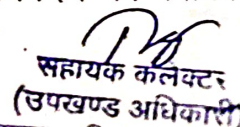 सहायक कलेक्टर
(उपखण्ड अधिकारी)